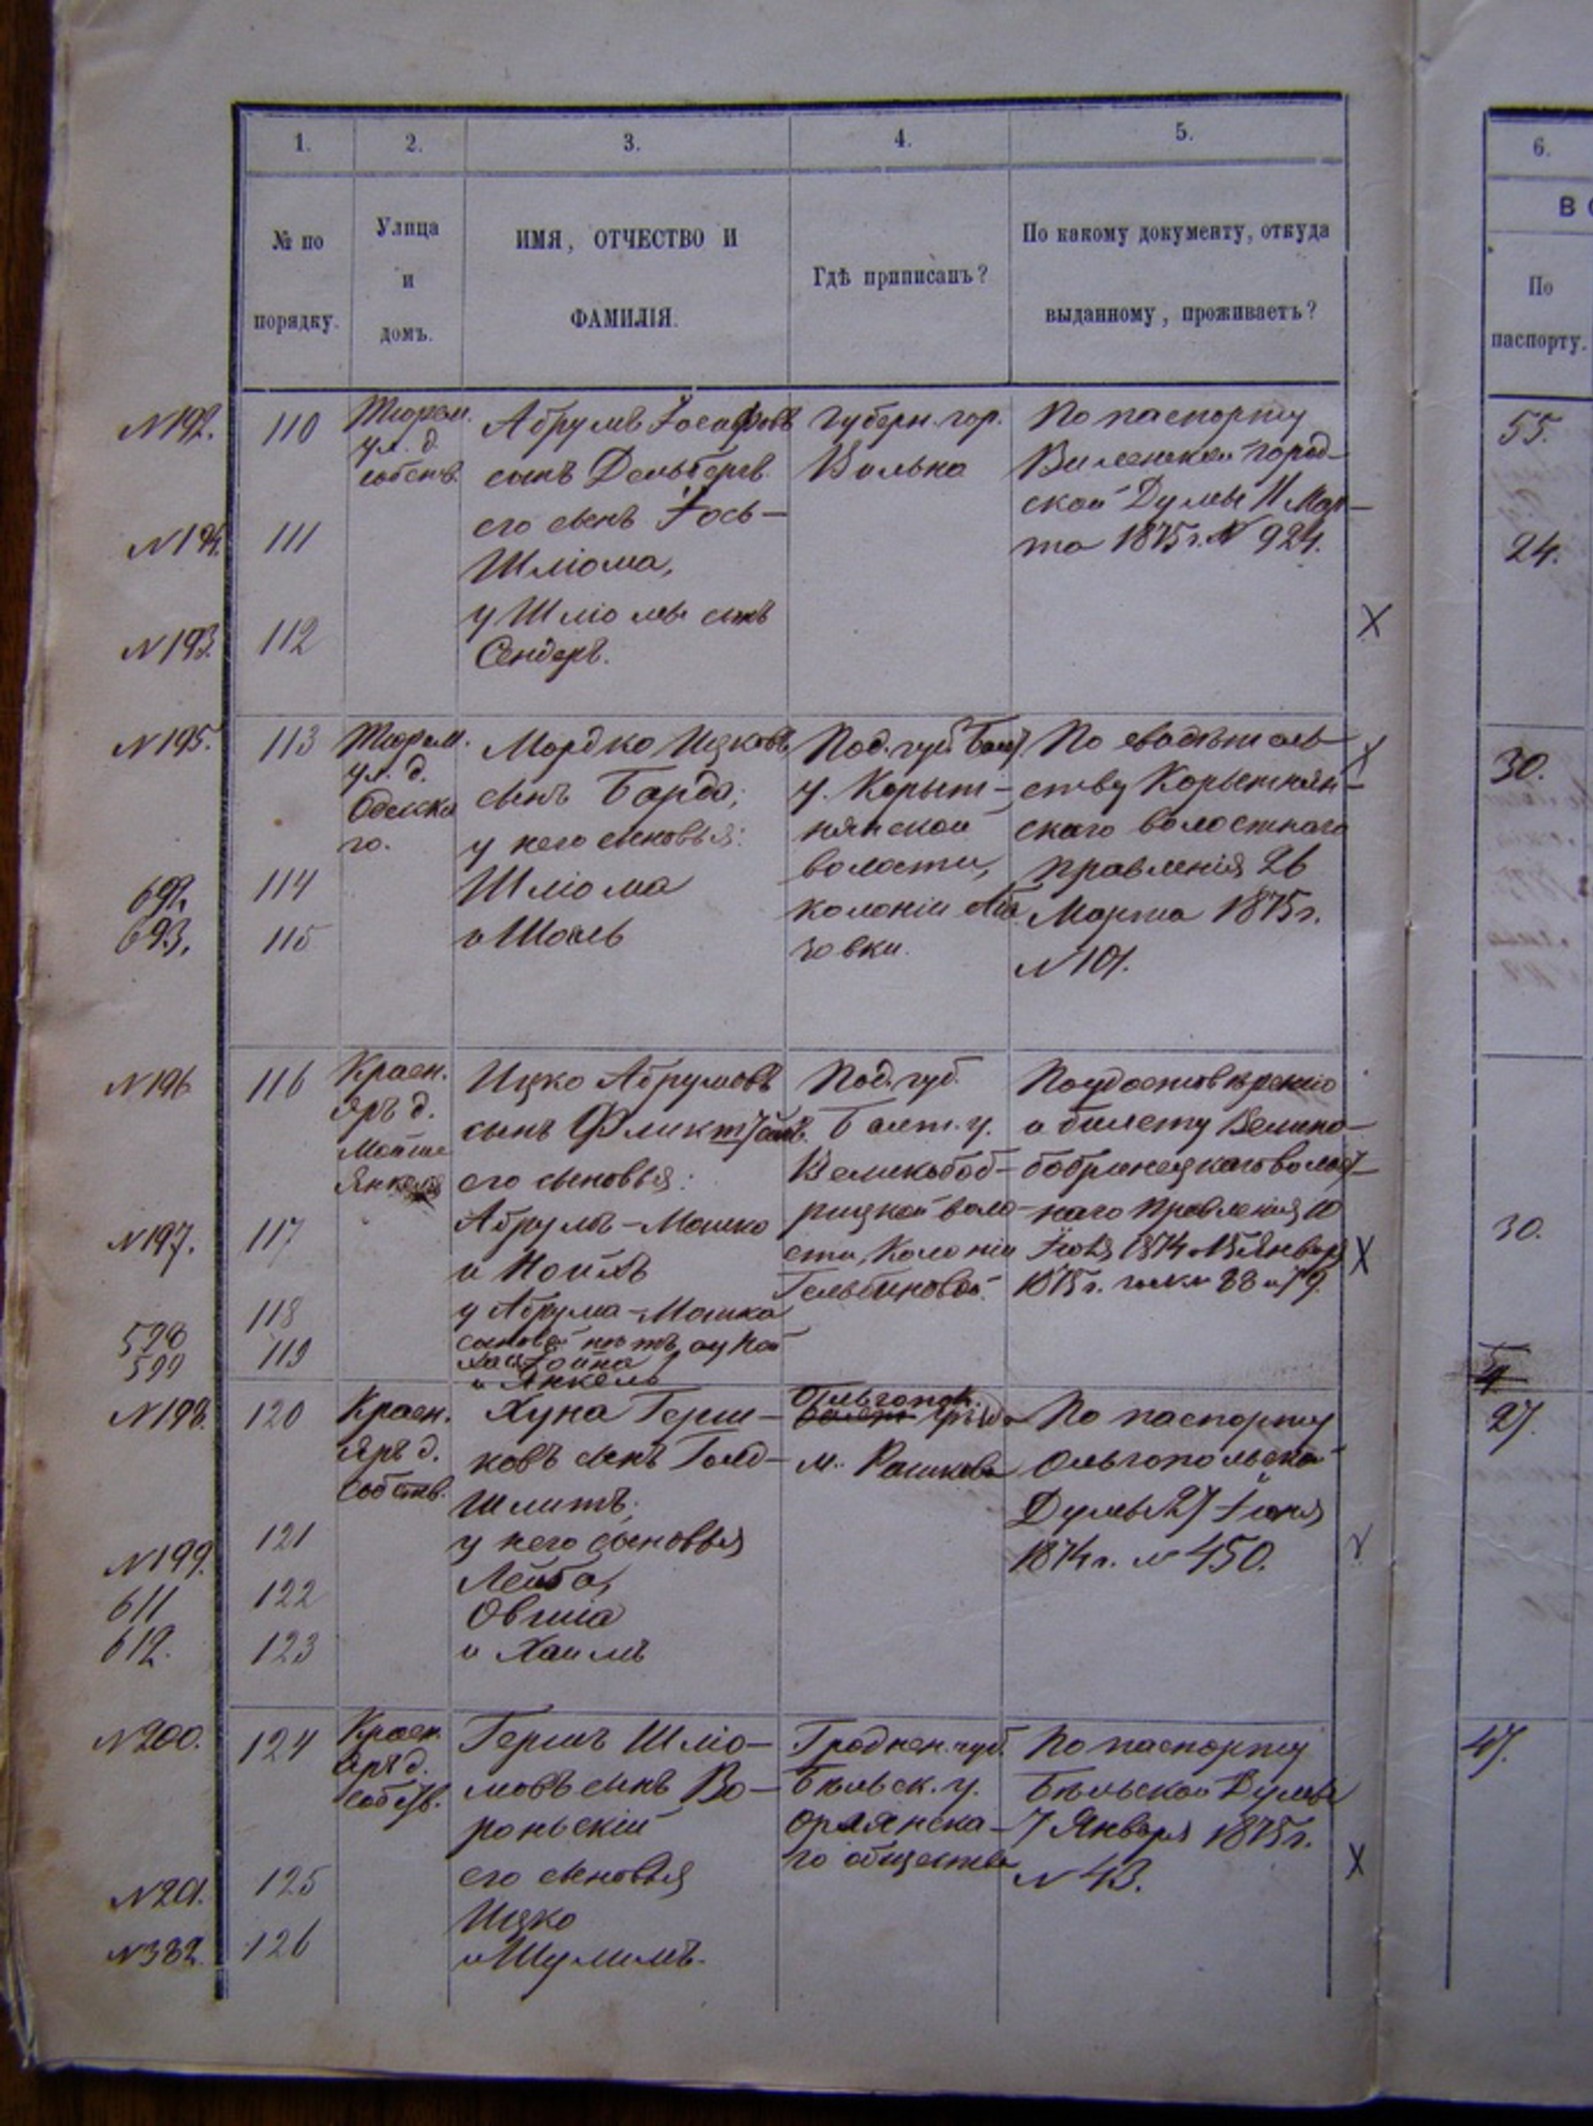 1.
2.
3.
4.
5.
6.
№ по
порядку.
Улица
и
домъ.
ИМЯ, ОТЧЕСТВО И
ФАМИЛІЯ.
Гдѣ приписанъ?
По какому документу, откуда
выданному, проживаетъ?
По
паспорту.
N192.
110
Тюрем.
ул. д.
собств.
Абрумъ Іосифовъ
сынъ
его сынъ Іось-
Шліома,
у Шліомы сынъ
Сендеръ.
Губерн. гор.
Вильна
По паспорту
Виленской город-
ской Думы 11 Мар-
та 1875 г. N 924.
111
N193.
112
55.
24.
N195.
113
Тюрем.
ул. д.
Одеска
го.
Мордко Ицковъ
сынъ Барда;
у него сыновья:
Шліома
и Шоель
Под. губ. Балт.
у. Корыт-
нянской
волости,
колоніи
По свидѣтель-
ству Корытнян-
скаго волостнаго
правленія 26
Марта 1875 г.
N 101.
692.
114
693.
115
30.
N196
116
Красн.
яръ д.
Мошке
Янкеля
Ицко Абрумовъ
сынъ
его сыновья:
Абрумъ-Мошко
и
у Абрума-Мошка
и Янкель
Под. губ.
Балт. у.
Великобоб-
рицкой воло-
сти, Колоніи
По удостовѣренію
и билету Велико-
бобринецкаго волост-
наго Правленія 10
1874 и 15 Января
1875 г. 88 и 79.
N197.
117
118
598
599
119
30.
N198.
120
Красн.
яръ д.
Собств.
Хуна Герш-
ковъ сынъ Голд-
шмитъ;
у него сыновья
Лейба,
Овшіа
и Хаимъ
Ольгопол.
м. Рашкова
По паспорту
Ольгопольской
Думы 27 Іюня
1874 г. N 450.
N199.
121
611
122
612.
123
27.
N200.
124
Красн.
яръ д.
собств.
Гершъ Шліо-
мовъ сынъ Во-
роньскій
его сыновья
Ицко
и Шулимъ.
Гроднен. губ.
Бѣльск. у.
Орлянска-
го общества
По паспорту
Бѣльской Думы
7 Января 1875 г.
N 43.
N201.
125
N382.
126
47.